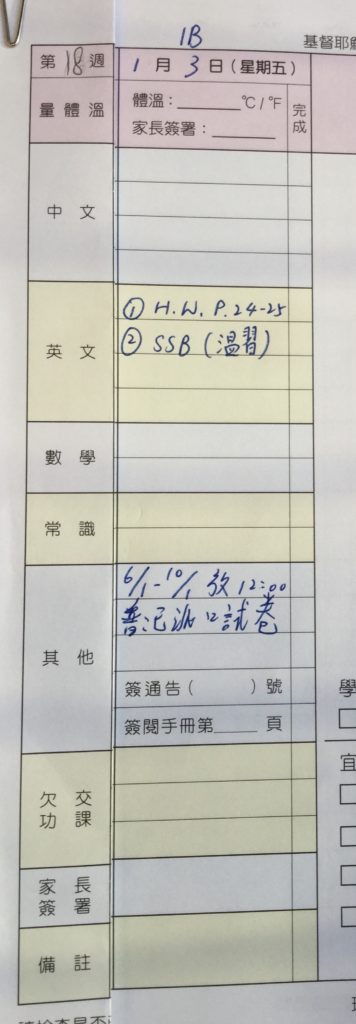 1B
基督耶穌
第 18 週
1 月 3 日 (星期五)
量體溫
體溫：______ °C / °F
家長簽署：______
完成
中文
英文
① H.W. P.24-25
② SSB (溫習)
數學
常識
其他
6/1-10/1 放 12:00
普 派口試卷
簽通告 ( ) 號
簽閱手冊第____ 頁
欠交功課
家長簽署
備註
學
宜